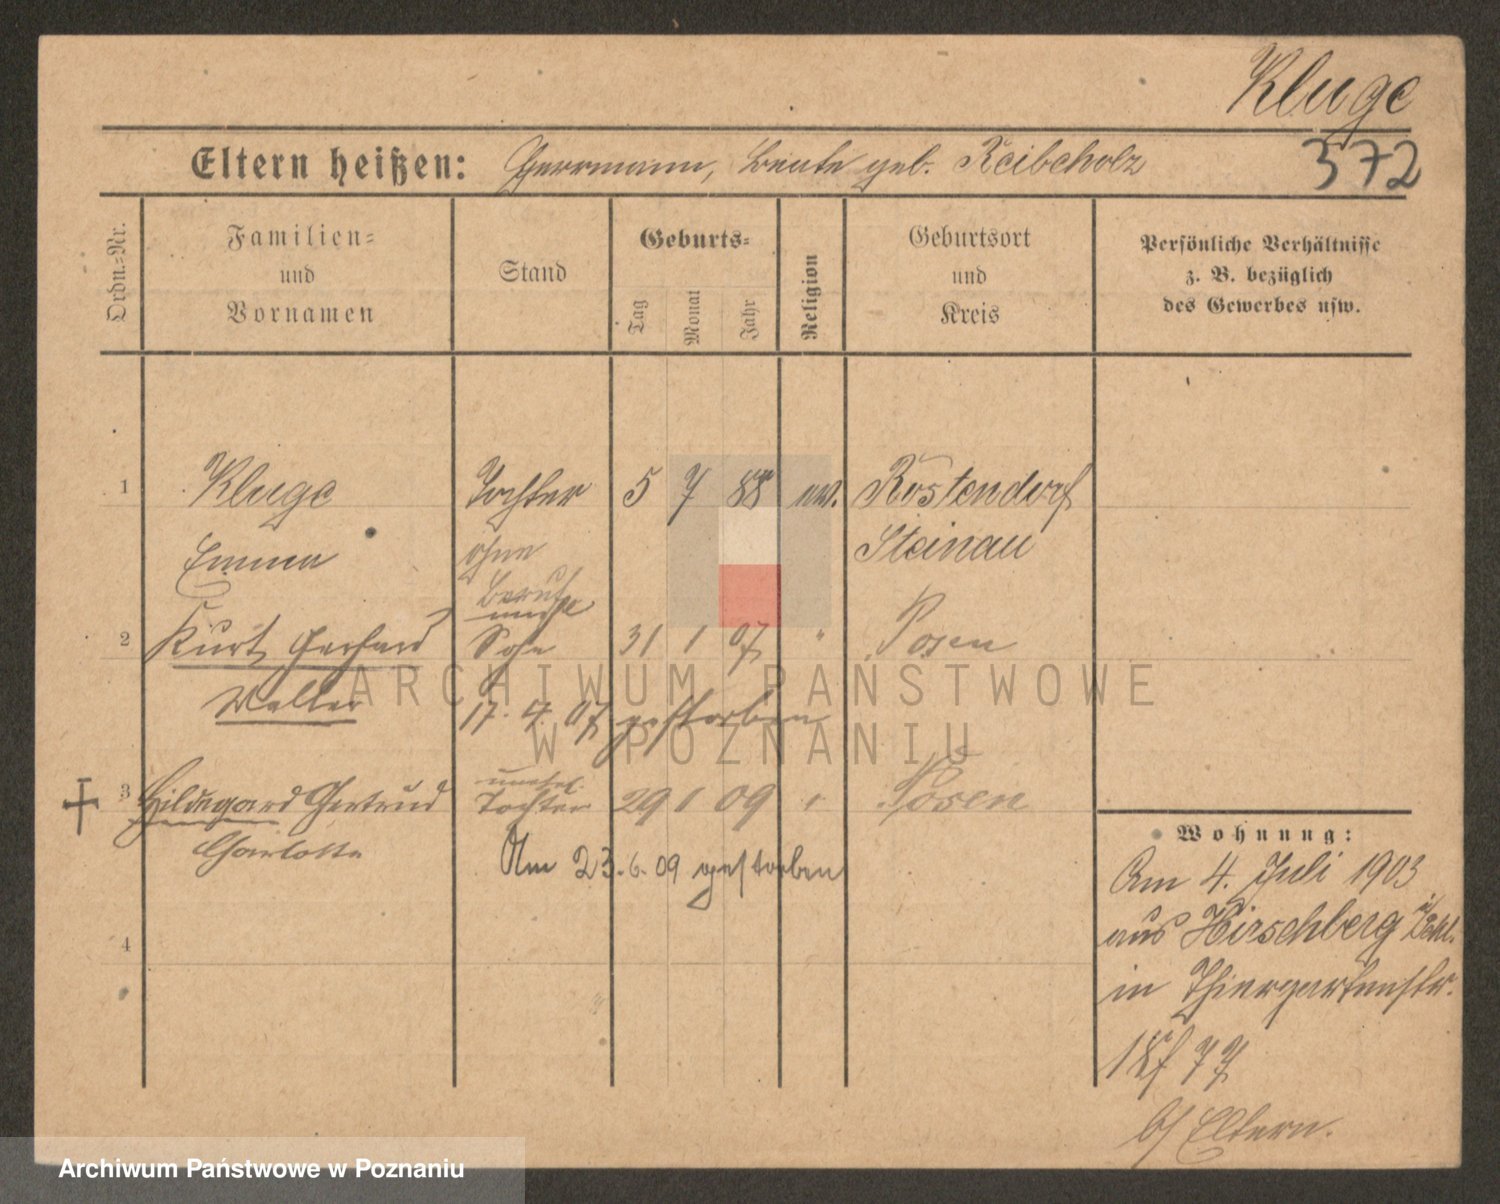 Kluge
Eltern heißen: Herrmann, Beate geb. Reibeholz 372
Ordn.-Nr.
Familien-
und
Vornamen
Stand
Geburts-
Tag
Monat
Jahr
Religion
Geburtsort
und
Kreis
Persönliche Verhältnisse
z. B. bezüglich
des Gewerbes usw.
1 Kluge Tochter 5 7 88 ev. Rostendorf
Emma ohne Steinau
Beruf
unehl
2 Kurt Gerhard Sohn 31 1 07 " Posen
Walter 17. 4. 07 gestorben
unehel.
3 Hildegard Gertrud Tochter 29 1 09 " Posen
Charlotte
Am 23.6.09 gestorben
4
Wohnung:
Am 4. Juli 1903
aus Hirschberg
in Thiergartenstr.
b/ Eltern.
ARCHIWUM PAŃSTWOWE
W POZNANIU
Archiwum Państwowe w Poznaniu